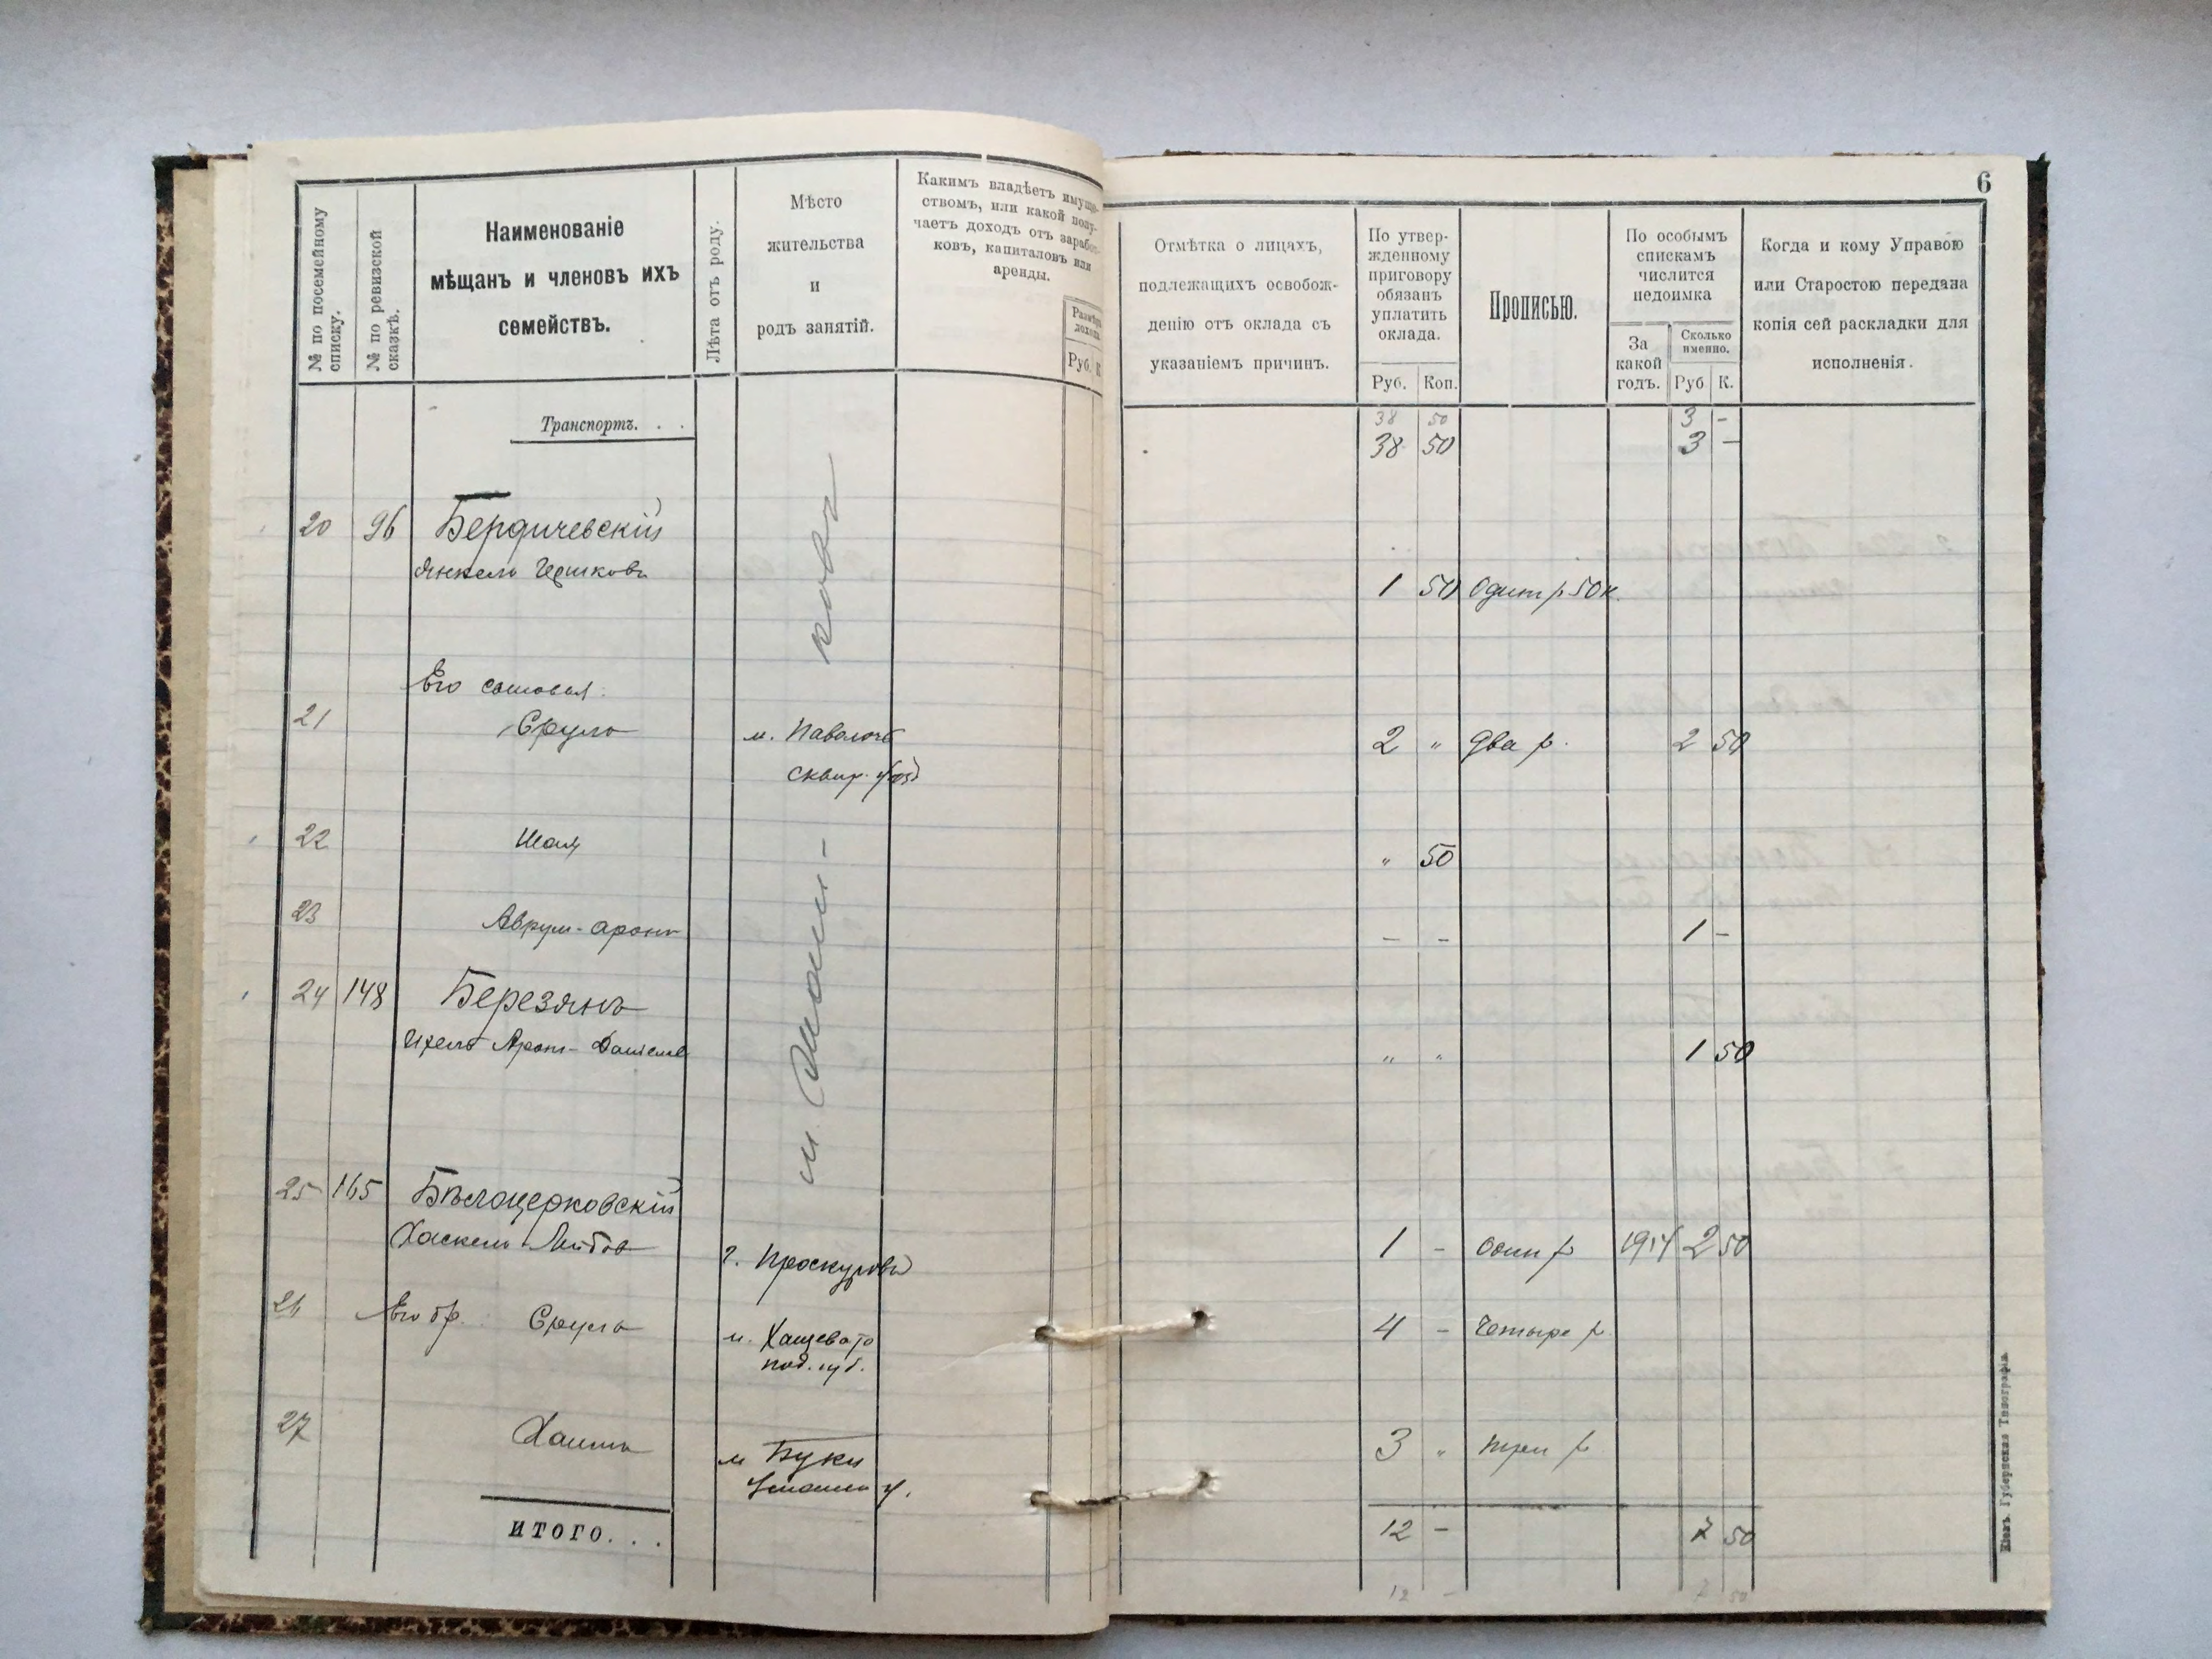 6
№ по посемейному
списку.
№ по ревизской
сказкѣ.
Наименованіе
мѣщанъ и членовъ ихъ
семействъ.
Лѣта отъ роду.
Мѣсто
жительства
и
родъ занятій.
Какимъ владѣетъ имуще-
ствомъ, или какой полу-
чаетъ доходъ отъ заработ-
ковъ, капиталовъ или
аренды.
Размѣръ
дохода
Руб. К
Отмѣтка о лицахъ,
подлежащихъ освобож-
денію отъ оклада съ
указаніемъ причинъ.
По утвер-
жденному
приговору
обязанъ
уплатить
оклада.
Руб. Коп.
Прописью.
По особымъ
спискамъ
числится
недоимка
За
какой
годъ.
Сколько
именно.
Руб К.
Когда и кому Управою
или Старостою передана
копія сей раскладки для
исполненія.
Транспортъ. . .
38 50 3 -
38 50 3 -
20 96 Бердичевскій
Янкель Гершковъ
1 50 Один р 50 к.
Его сыновья:
21 Сруль м. Паволочь 2 " два р. 2 50
сквир. уѣзд
22 Шая " 50
23 Аврум-Аронъ - - 1 -
24 148 Березянъ
Ихель Арон-
" " 1 50
25 165 Бѣлоцерковскій
Хаскель Лейбов
г. Проскуровъ 1 - один р 1914 2 50
26 Его бр. Сруль м. Хащевато 4 - Четыре р.
под. губ.
27 Хаимъ м Буки 3 " три р
Уманск у.
ИТОГО. . .
12 - 7 50
12 - 7 50
Кіевъ. Губернская Типографія.